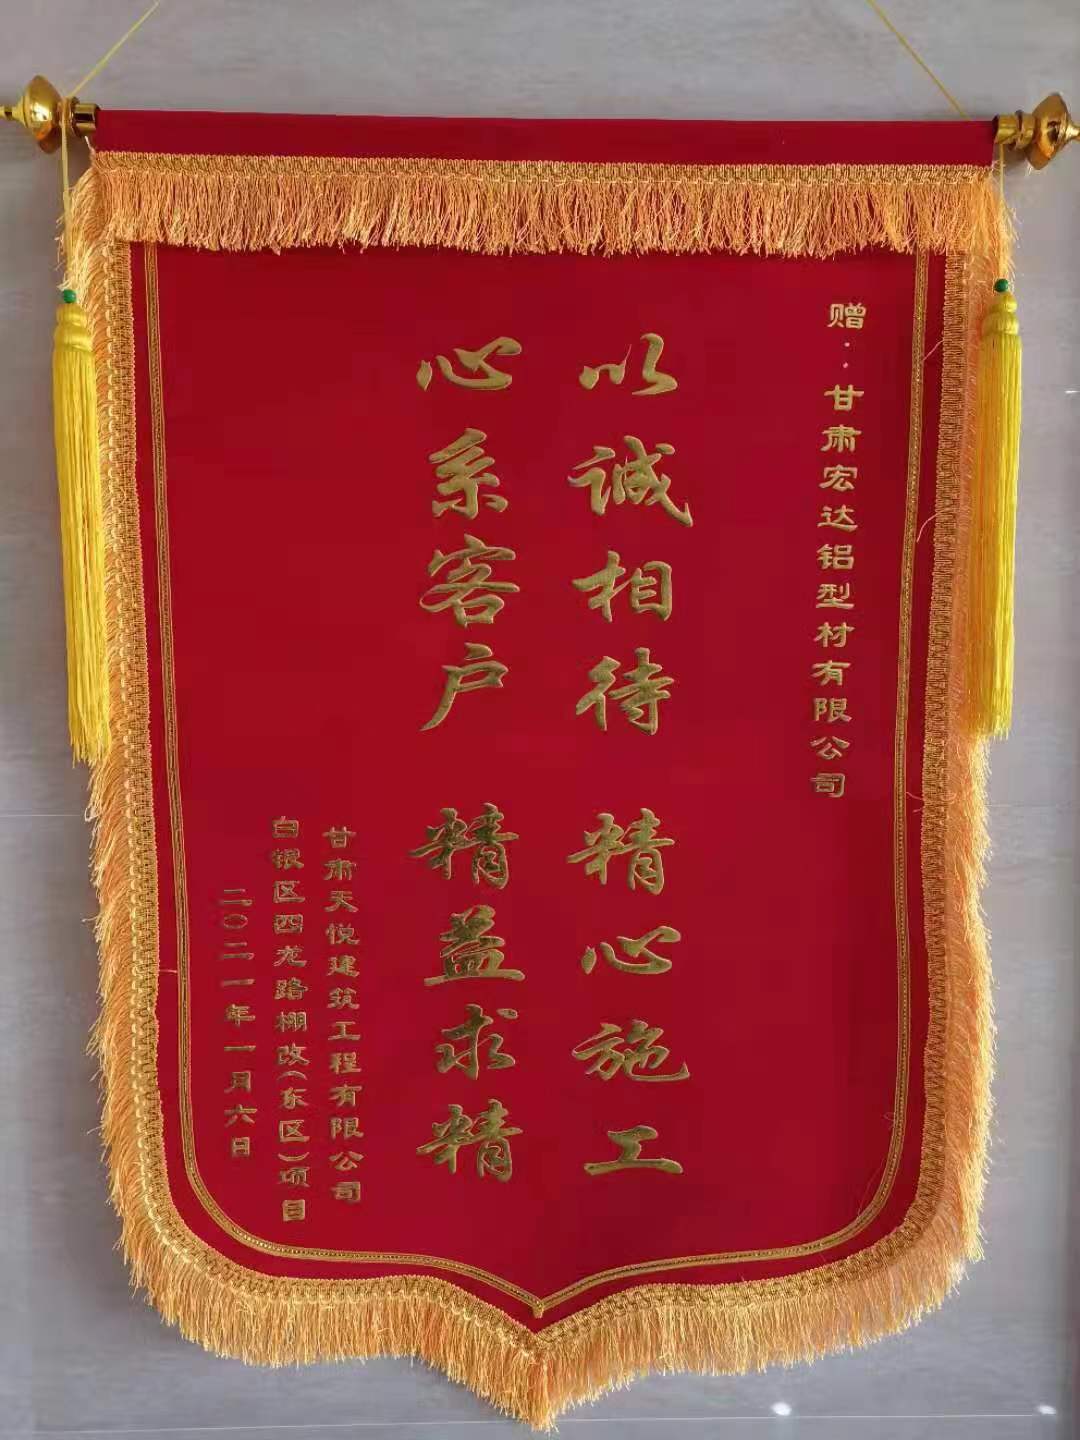 赠：甘肃宏达铝型材有限公司
以诚相待 精心施工
心系客户 精益求精
甘肃天悦建筑工程有限公司
白银区四龙路棚改(东区)项目
二〇二一年一月六日